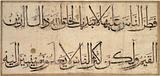 فطر الناس عليها لا تبديل لخلق الله ذلك الدين
القيم ولكن اكثر الناس لا يعلمون منيبين اليه